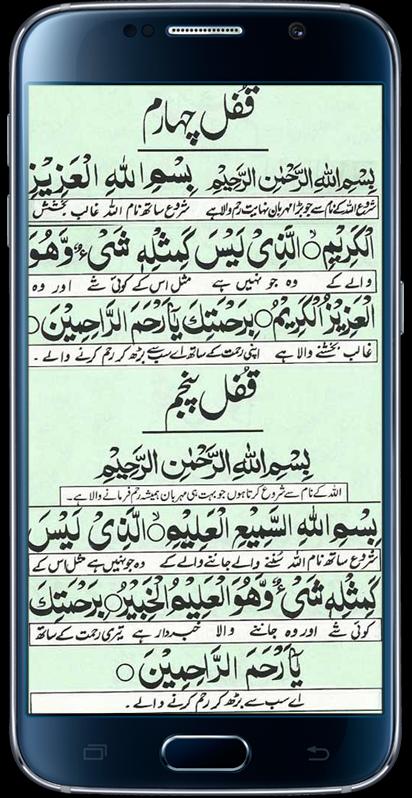 قفل چہارم
بِسْمِ اللهِ الرَّحْمٰنِ الرَّحِيْمِ بِسْمِ اللهِ الْعَزِيْزِ
شروع اللہ کے نام سے جو بڑا مہربان نہایت رحم والا ہے شروع ساتھ نام اللہ غالب بخشش
الْكَرِيْمِ ○ الَّذِىْ لَيْسَ كَمِثْلِهٖ شَىْءٌ وَّهُوَ
والے کے وہ جو نہیں ہے مثل اس کے کوئی شے اور وہ
الْعَزِيْزُ الْكَرِيْمُ ○ بِرَحْمَتِكَ يَاۤ اَرْحَمَ الرَّاحِمِيْنَ ○
غالب بخشنے والا ہے اپنی رحمت کے ساتھ اے سب سے بڑھ کر رحم کرنے والے۔
قفل پنجم
بِسْمِ اللهِ الرَّحْمٰنِ الرَّحِيْمِ
اللہ کے نام سے شروع کرتا ہوں جو بہت ہی مہربان ہمیشہ رحم فرمانے والا ہے۔
بِسْمِ اللهِ السَّمِيْعِ الْعَلِيْمِ ○ الَّذِىْ لَيْسَ
شروع ساتھ نام اللہ سننے والے جاننے والے کے وہ جو نہیں ہے مثل اس کے
كَمِثْلِهٖ شَىْءٌ وَّهُوَ الْعَلِيْمُ الْخَبِيْرُ ○ بِرَحْمَتِكَ
کوئی شے اور وہ جاننے والا خبردار ہے تیری رحمت کے ساتھ
يَاۤ اَرْحَمَ الرَّاحِمِيْنَ ○
اے سب سے بڑھ کر رحم کرنے والے۔